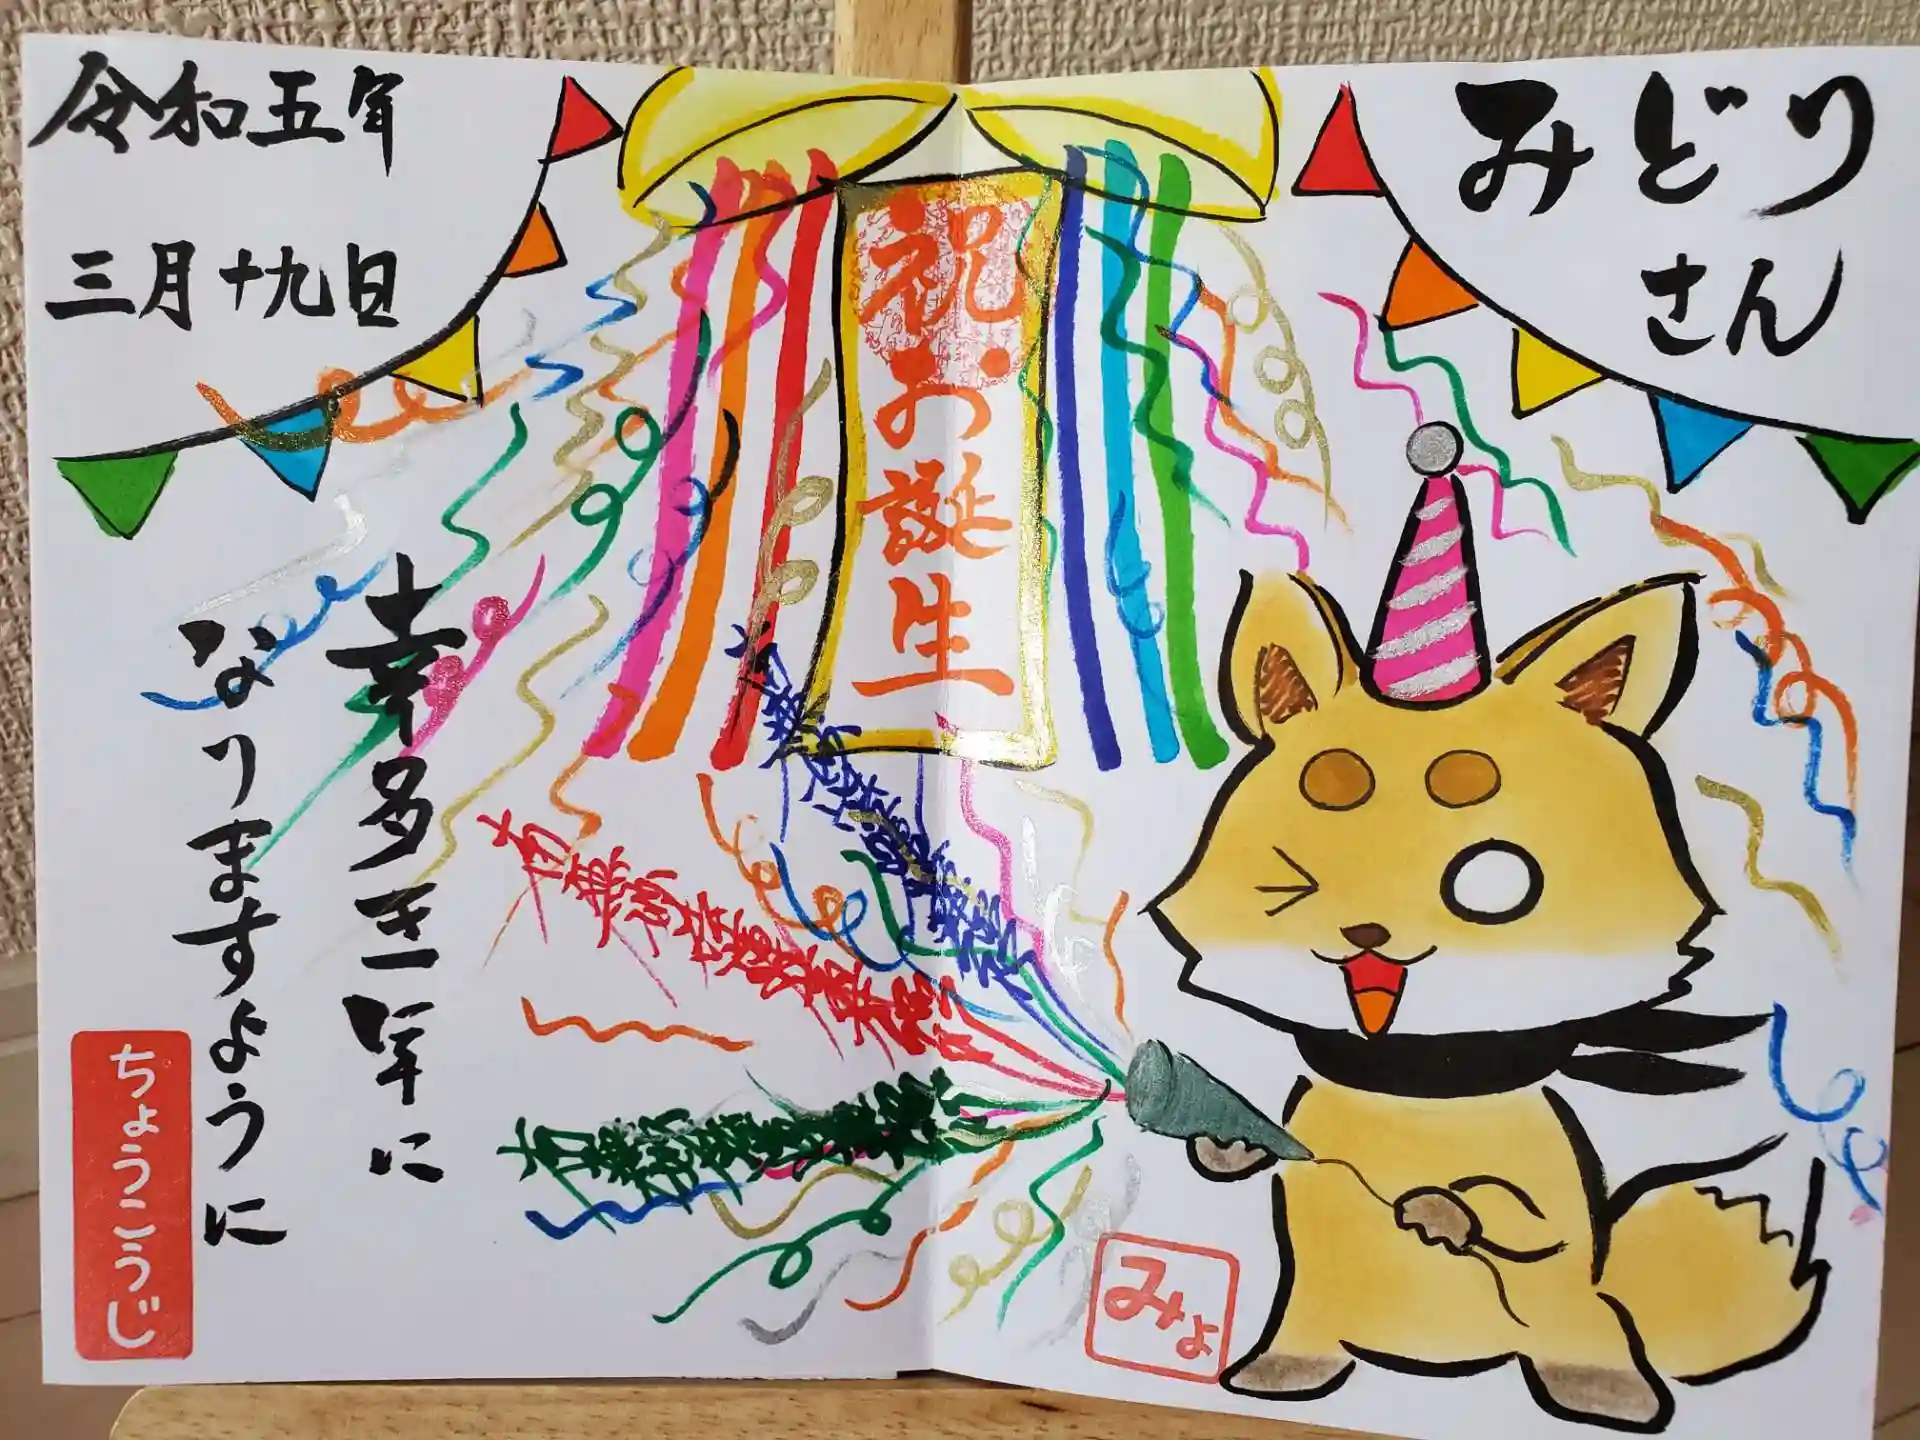 みどり
さん
祝お誕生
令和五年
三月十九日
幸多き一年に
なりますように
ちょうこうじ
みょ